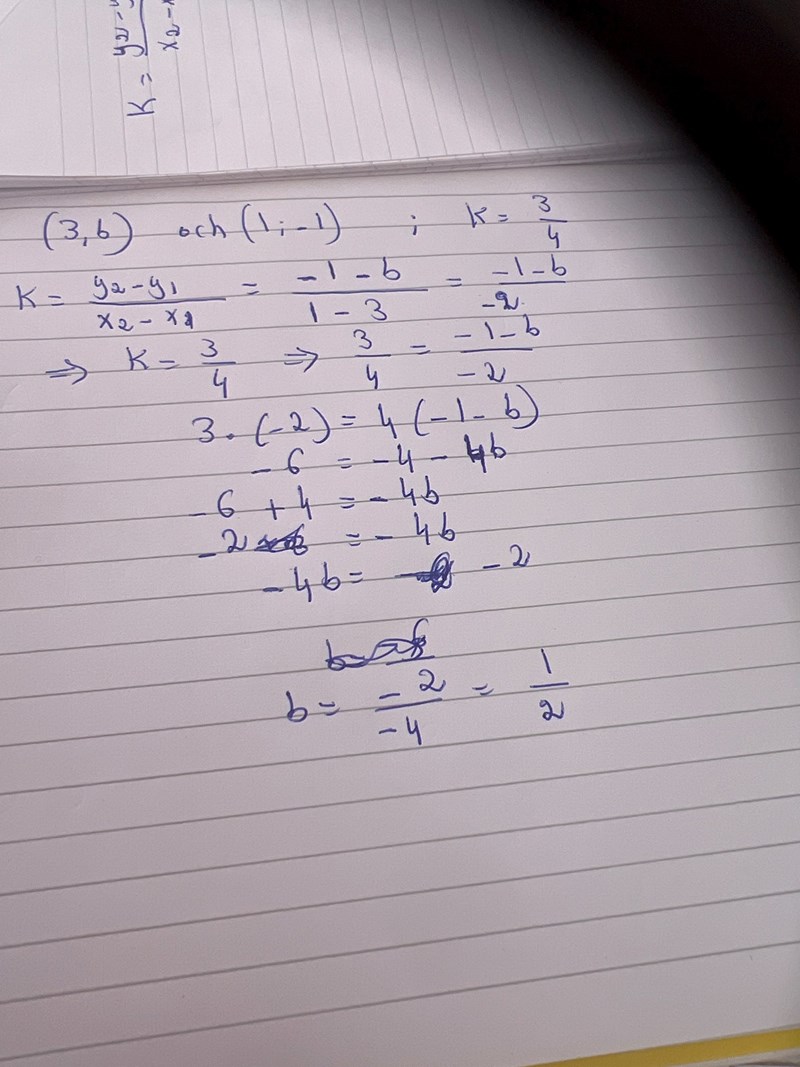 K = y2-y
x2-x
(3,b) och (1;-1) ; K = 3/4
K = y2-y1/x2-x1 = -1-b/1-3 = -1-b/-2
⇒ K = 3/4 ⇒ 3/4 = -1-b/-2
3·(-2) = 4(-1-b)
-6 = -4-4b
-6+4 = -4b
-2 = -4b
-4b = -2
b = -2/-4 = 1/2